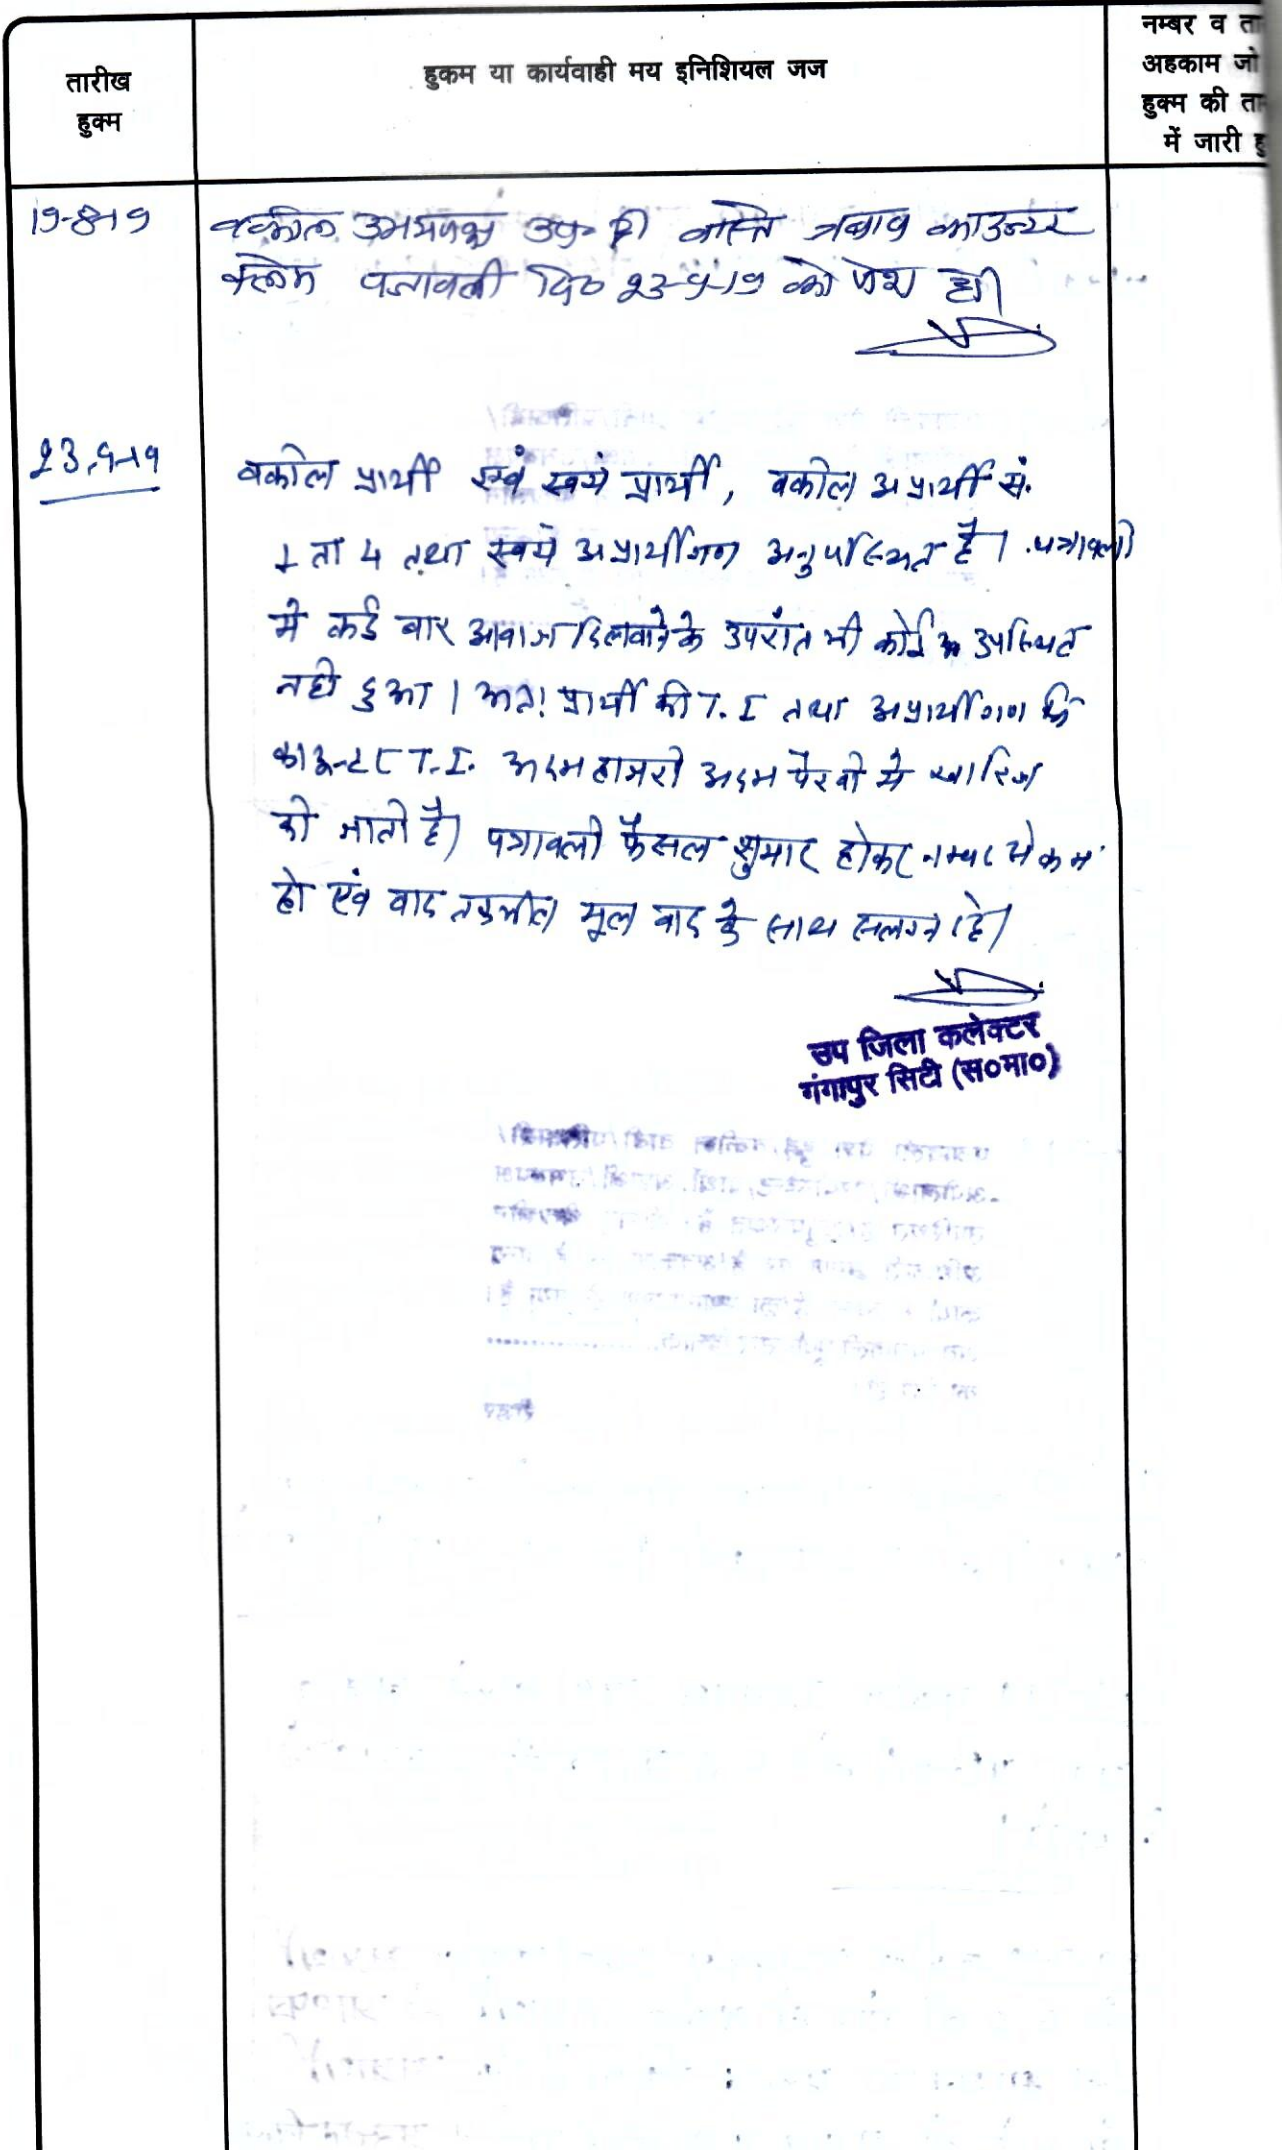 तारीख
हुक्म
हुकम या कार्यवाही मय इनिशियल जज
नम्बर व ता
अहकाम जो
हुक्म की ता
में जारी हु
19-8-19
वकील उभयपक्ष उप० है। वास्ते जवाब काउन्टर
क्लेम पत्रावली दि० 23-9-19 को पेश हो।
23.9-19
वकील प्रार्थी एवं स्वयं प्रार्थी, वकील अप्रार्थी सं.
1 ता 4 तथा स्वयं अप्रार्थीगण अनुपस्थित है। पत्रावली
में कई बार आवाज दिलवाने के उपरांत भी कोई उपस्थित
नही हुआ। अतः प्रार्थी की T.I तथा अप्रार्थीगण कि
काउन्टर T.I. अदम हाजरी अदम पैरवी में खारिज
की जाती है। पत्रावली फैसल शुमार होकर नम्बर से कम
हो एंव वाद तकमील मूल वाद के साथ सलग्न रहे।
उप जिला कलेक्टर
गंगापुर सिटी (स०मा०)